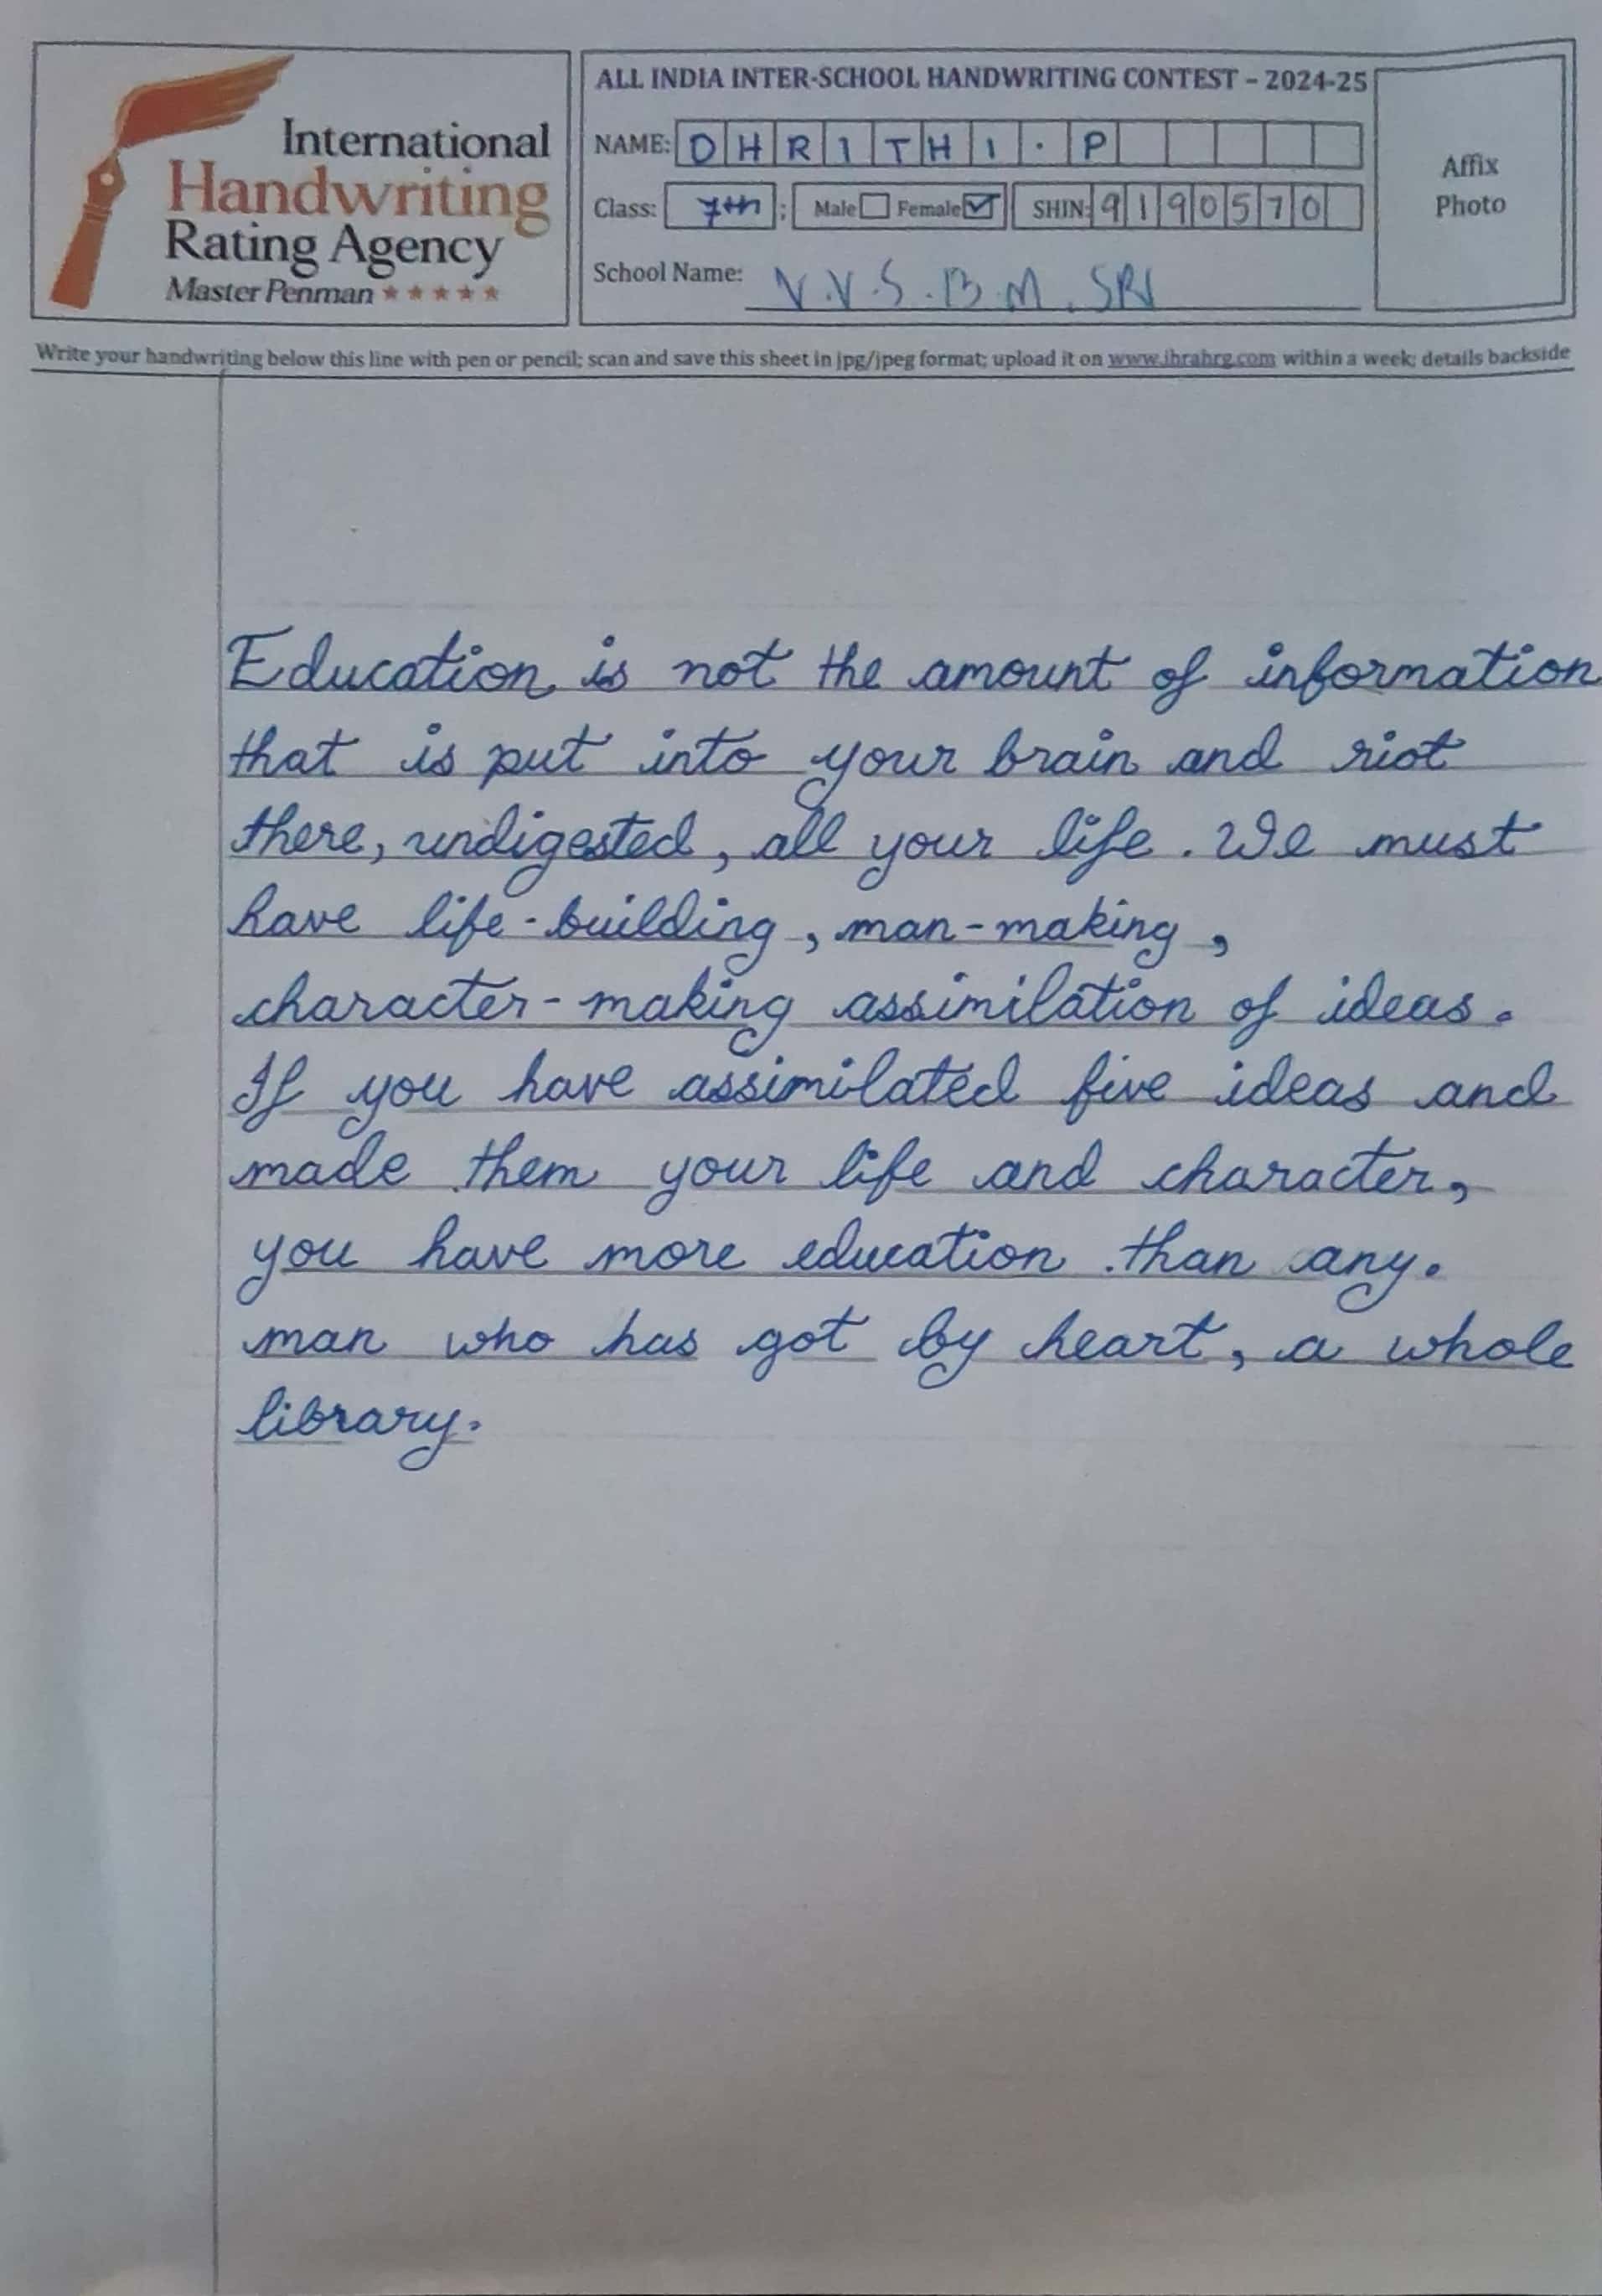 International
Handwriting
Rating Agency
Master Penman ★★★★★
ALL INDIA INTER-SCHOOL HANDWRITING CONTEST – 2024-25
NAME: DHRITHI.P
Class: 7th ; Male Female ✓ SHIN: 9190570
School Name: V.V.S.B.M. SRV
Affix
Photo
Write your handwriting below this line with pen or pencil; scan and save this sheet in jpg/jpeg format; upload it on www.ihrahrg.com within a week; details backside
Education is not the amount of information
that is put into your brain and riot
there, undigested, all your life. We must
have life-building, man-making,
character-making assimilation of ideas.
If you have assimilated five ideas and
made them your life and character,
you have more education than any.
man who has got by heart, a whole
library.